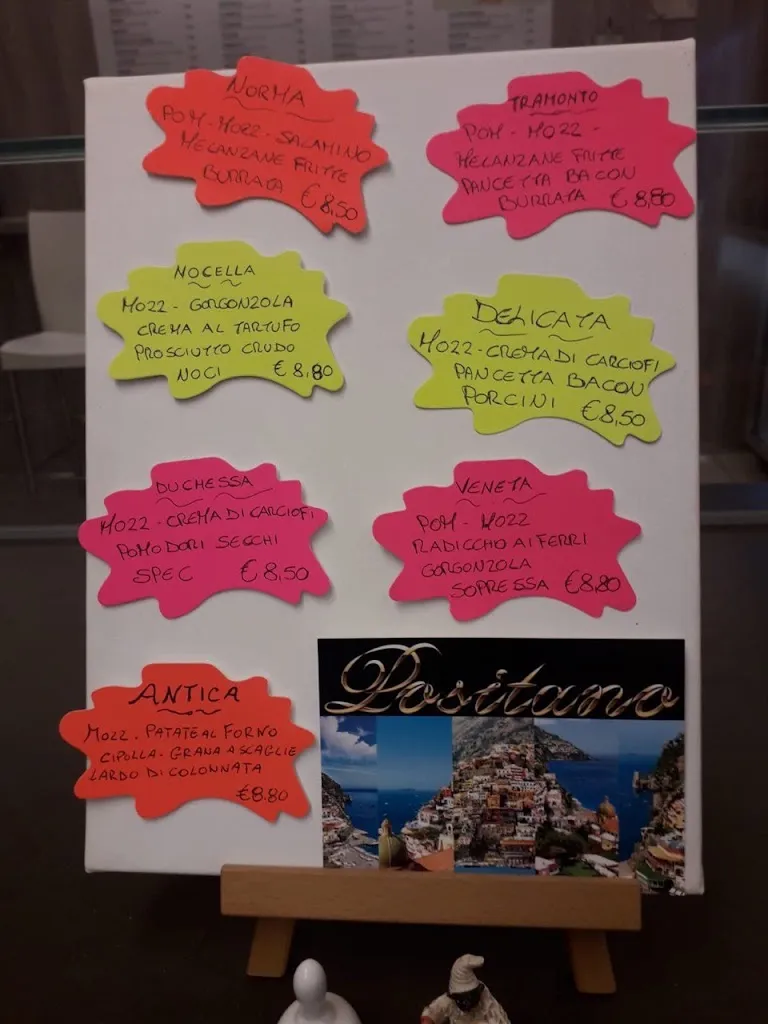 NORMA
POM-MOZZ-SALAMINO
MELANZANE FRITTE
BURRATA €8,50
TRAMONTO
POM-MOZZ-
MELANZANE FRITTE
PANCETTA BACON
BURRATA €8,80
NOCELLA
MOZZ-GORGONZOLA
CREMA AL TARTUFO
PROSCIUTTO CRUDO
NOCI €8,80
DELICATA
MOZZ-CREMA DI CARCIOFI
PANCETTA BACON
PORCINI €8,50
DUCHESSA
MOZZ-CREMA DI CARCIOFI
POMODORI SECCHI
SPEC €8,50
VENETA
POM-MOZZ
RADICCHO AI FERRI
GORGONZOLA
SOPRESSA €8,80
ANTICA
MOZZ-PATATE AL FORNO
CIPOLLA-GRANA A SCAGLIE
LARDO DI COLONNATA
€8.80
Positano